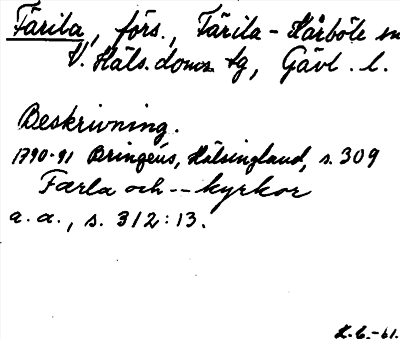 Färila, förs., Färila-Kårböle sn
V. Häls. doms. tg, Gävl. l.
Beskrivning.
1790-91 Bringéus, Hälsingland, s. 309
Færla och -- kyrkor
a. a., s. 312:13.
K.G.-61.